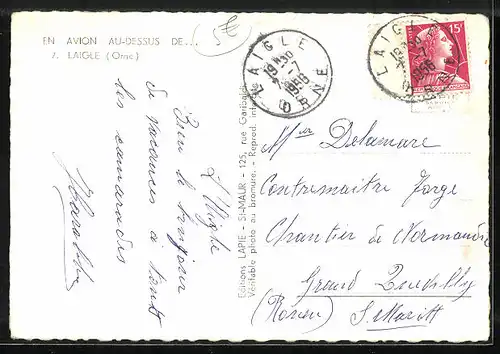 EN AVION AU-DESSUS DE...
7. LAIGLE (Orne)
5€
LAIGLE
19H30
-7
1956
ORNE
LAIGLE
1956
15F
L'Aigle
Bien le bonjour
de vacances à tous
les camarades
Editions LAPIE - St-MAUR - 125, rue Garibaldi
Véritable photo au bromure. - Reprod. int.
Mr Delamare
Contremaitre Forge
Chantier de Normandie
Grand Quevilly
(Rouen) S. Maritt